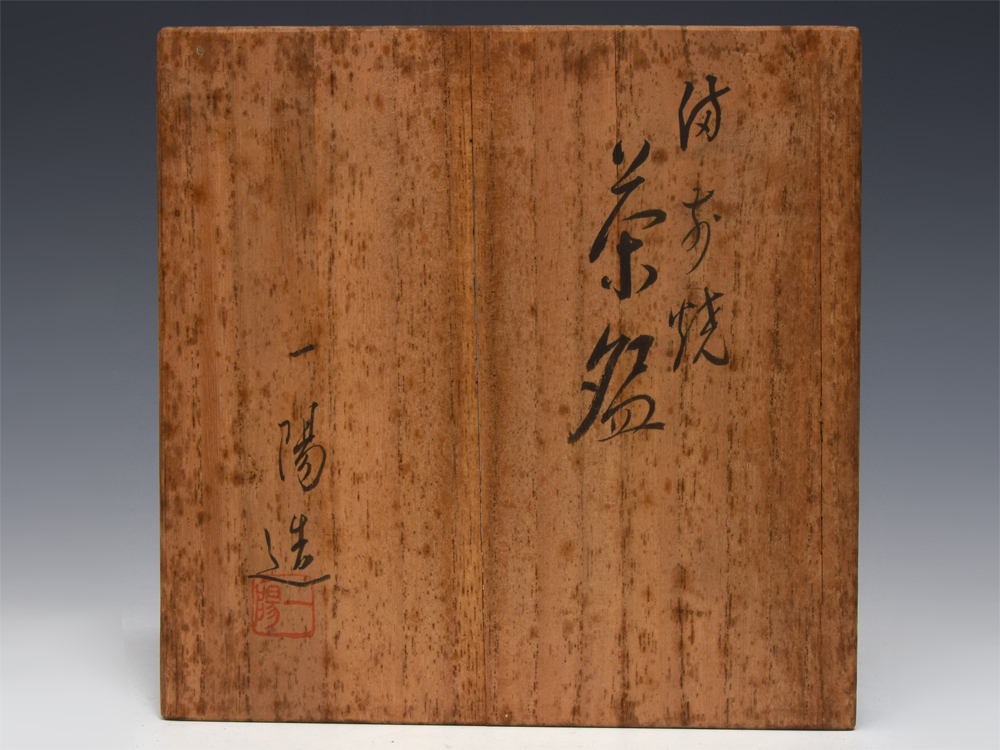 備前焼
茶盌
一陽造
一陽